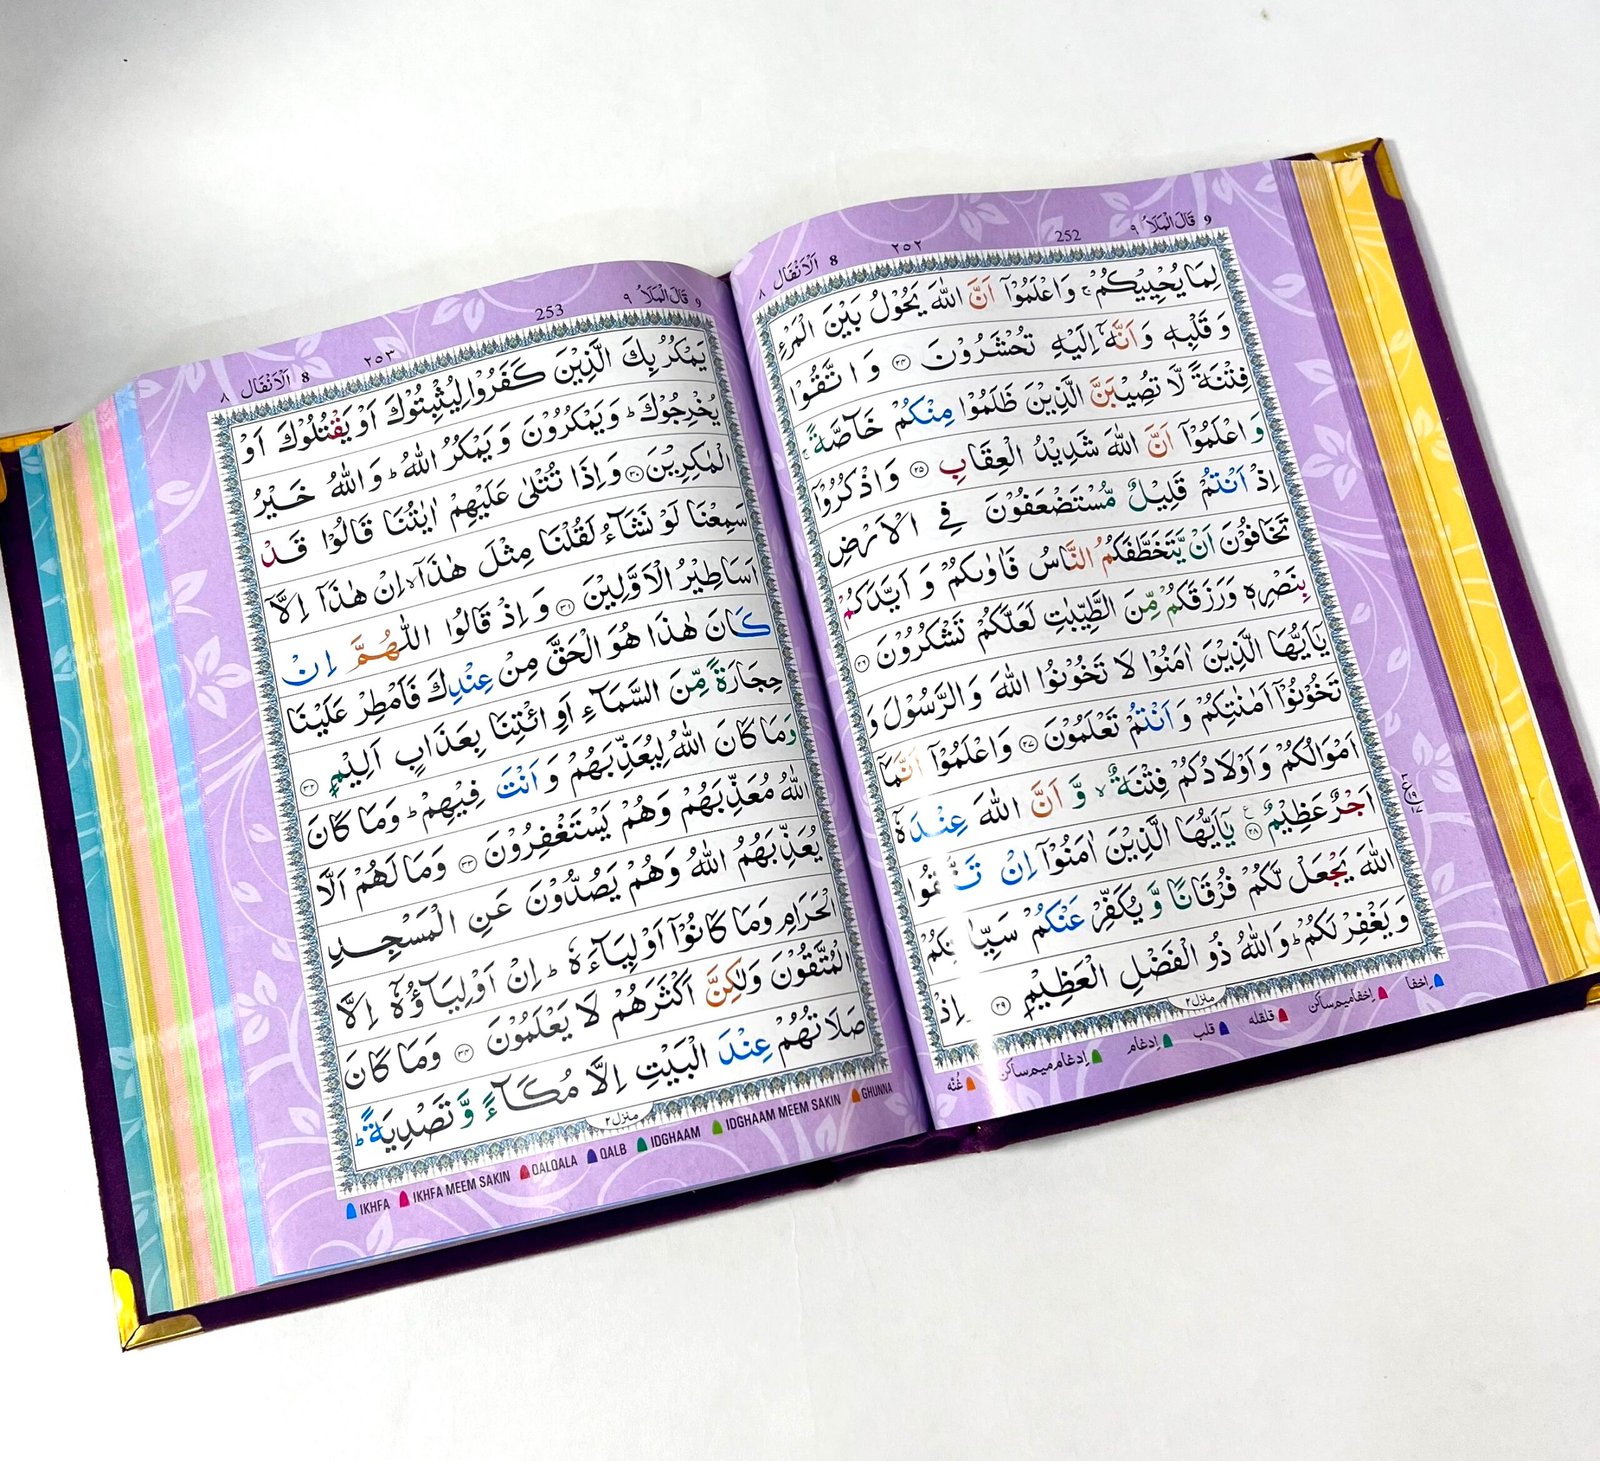 9 قَالَ الْمَلَاُ ٩ 252 ٢٥٢ 8 اَلْاَنْفَال ٨
لِمَا يُحْيِيْكُمْ ۚ وَاعْلَمُوْۤا اَنَّ اللّٰهَ يَحُوْلُ بَيْنَ الْمَرْءِ
وَقَلْبِهٖ وَاَنَّهٗۤ اِلَيْهِ تُحْشَرُوْنَ ٢٤ وَاتَّقُوْا
فِتْنَةً لَّا تُصِيْبَنَّ الَّذِيْنَ ظَلَمُوْا مِنْكُمْ خَآصَّةً ۚ
وَاعْلَمُوْۤا اَنَّ اللّٰهَ شَدِيْدُ الْعِقَابِ ٢٥ وَاذْكُرُوْۤا
اِذْ اَنْتُمْ قَلِيْلٌ مُّسْتَضْعَفُوْنَ فِى الْاَرْضِ
تَخَافُوْنَ اَنْ يَّتَخَطَّفَكُمُ النَّاسُ فَاٰوٰىكُمْ وَاَيَّدَكُمْ
بِنَصْرِهٖ وَرَزَقَكُمْ مِّنَ الطَّيِّبٰتِ لَعَلَّكُمْ تَشْكُرُوْنَ ٢٦
يٰۤاَيُّهَا الَّذِيْنَ اٰمَنُوْا لَا تَخُوْنُوا اللّٰهَ وَالرَّسُوْلَ وَ
تَخُوْنُوْۤا اَمٰنٰتِكُمْ وَاَنْتُمْ تَعْلَمُوْنَ ٢٧ وَاعْلَمُوْۤا اَنَّمَاۤ
اَمْوَالُكُمْ وَاَوْلَادُكُمْ فِتْنَةٌ ۙ وَّاَنَّ اللّٰهَ عِنْدَهٗۤ
اَجْرٌ عَظِيْمٌ ٢٨ يٰۤاَيُّهَا الَّذِيْنَ اٰمَنُوْۤا اِنْ تَتَّقُوا
اللّٰهَ يَجْعَلْ لَّكُمْ فُرْقَانًا وَّيُكَفِّرْ عَنْكُمْ سَيِّاٰتِكُمْ
وَيَغْفِرْ لَكُمْ ؕ وَاللّٰهُ ذُو الْفَضْلِ الْعَظِيْمِ ٢٩ وَاِذْ
منزل ٢
اِخفا اِخفامیم ساكن قلقله قلب اِدغام اِدغام میم ساكن غُنّه
9 قَالَ الْمَلَاُ ٩ 253 ٢٥٣ 8 اَلْاَنْفَال ٨
يَمْكُرُ بِكَ الَّذِيْنَ كَفَرُوْا لِيُثْبِتُوْكَ اَوْ يَقْتُلُوْكَ اَوْ
يُخْرِجُوْكَ ؕ وَيَمْكُرُوْنَ وَيَمْكُرُ اللّٰهُ ؕ وَاللّٰهُ خَيْرُ
الْمٰكِرِيْنَ ٣٠ وَاِذَا تُتْلٰى عَلَيْهِمْ اٰيٰتُنَا قَالُوْا قَدْ
سَمِعْنَا لَوْ نَشَآءُ لَقُلْنَا مِثْلَ هٰذَاۤ ۙ اِنْ هٰذَاۤ اِلَّاۤ
اَسَاطِيْرُ الْاَوَّلِيْنَ ٣١ وَاِذْ قَالُوا اللّٰهُمَّ اِنْ
كَانَ هٰذَا هُوَ الْحَقَّ مِنْ عِنْدِكَ فَاَمْطِرْ عَلَيْنَا
حِجَارَةً مِّنَ السَّمَآءِ اَوِ ائْتِنَا بِعَذَابٍ اَلِيْمٍ ٣٢
وَمَا كَانَ اللّٰهُ لِيُعَذِّبَهُمْ وَاَنْتَ فِيْهِمْ ؕ وَمَا كَانَ
اللّٰهُ مُعَذِّبَهُمْ وَهُمْ يَسْتَغْفِرُوْنَ ٣٣ وَمَا لَهُمْ اَلَّا
يُعَذِّبَهُمُ اللّٰهُ وَهُمْ يَصُدُّوْنَ عَنِ الْمَسْجِدِ
الْحَرَامِ وَمَا كَانُوْۤا اَوْلِيَآءَهٗ ؕ اِنْ اَوْلِيَآؤُهٗۤ اِلَّا
الْمُتَّقُوْنَ وَلٰكِنَّ اَكْثَرَهُمْ لَا يَعْلَمُوْنَ ٣٤ وَمَا كَانَ
صَلَاتُهُمْ عِنْدَ الْبَيْتِ اِلَّا مُكَآءً وَّتَصْدِيَةً ؕ
منزل ٢
IKHFA IKHFA MEEM SAKIN QALQALA QALB IDGHAAM IDGHAAM MEEM SAKIN GHUNNA